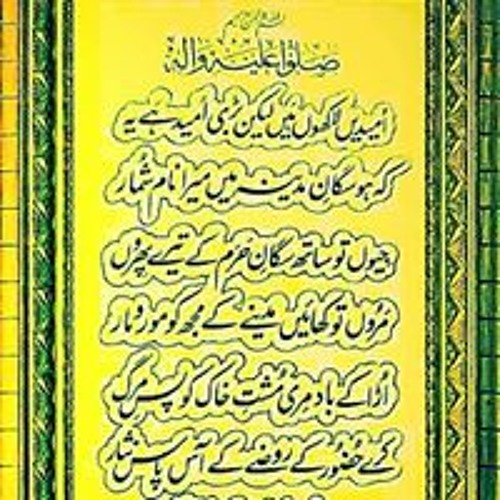 صلوا علیہ وآلہ
امیدیں لاکھوں ہیں لیکن بڑی امید ہے یہ
کہ ہو سگانِ مدینہ میں میرا نام شمار
جیوں تو ساتھ سگانِ حرم کے تیرے پھروں
مروں تو کھائیں مدینے کے مجھ کو مور و مار
اڑا کے باد مری مشتِ خاک کو پسِ مرگ
کرے حضور کے روضے کے آس پاس نثار